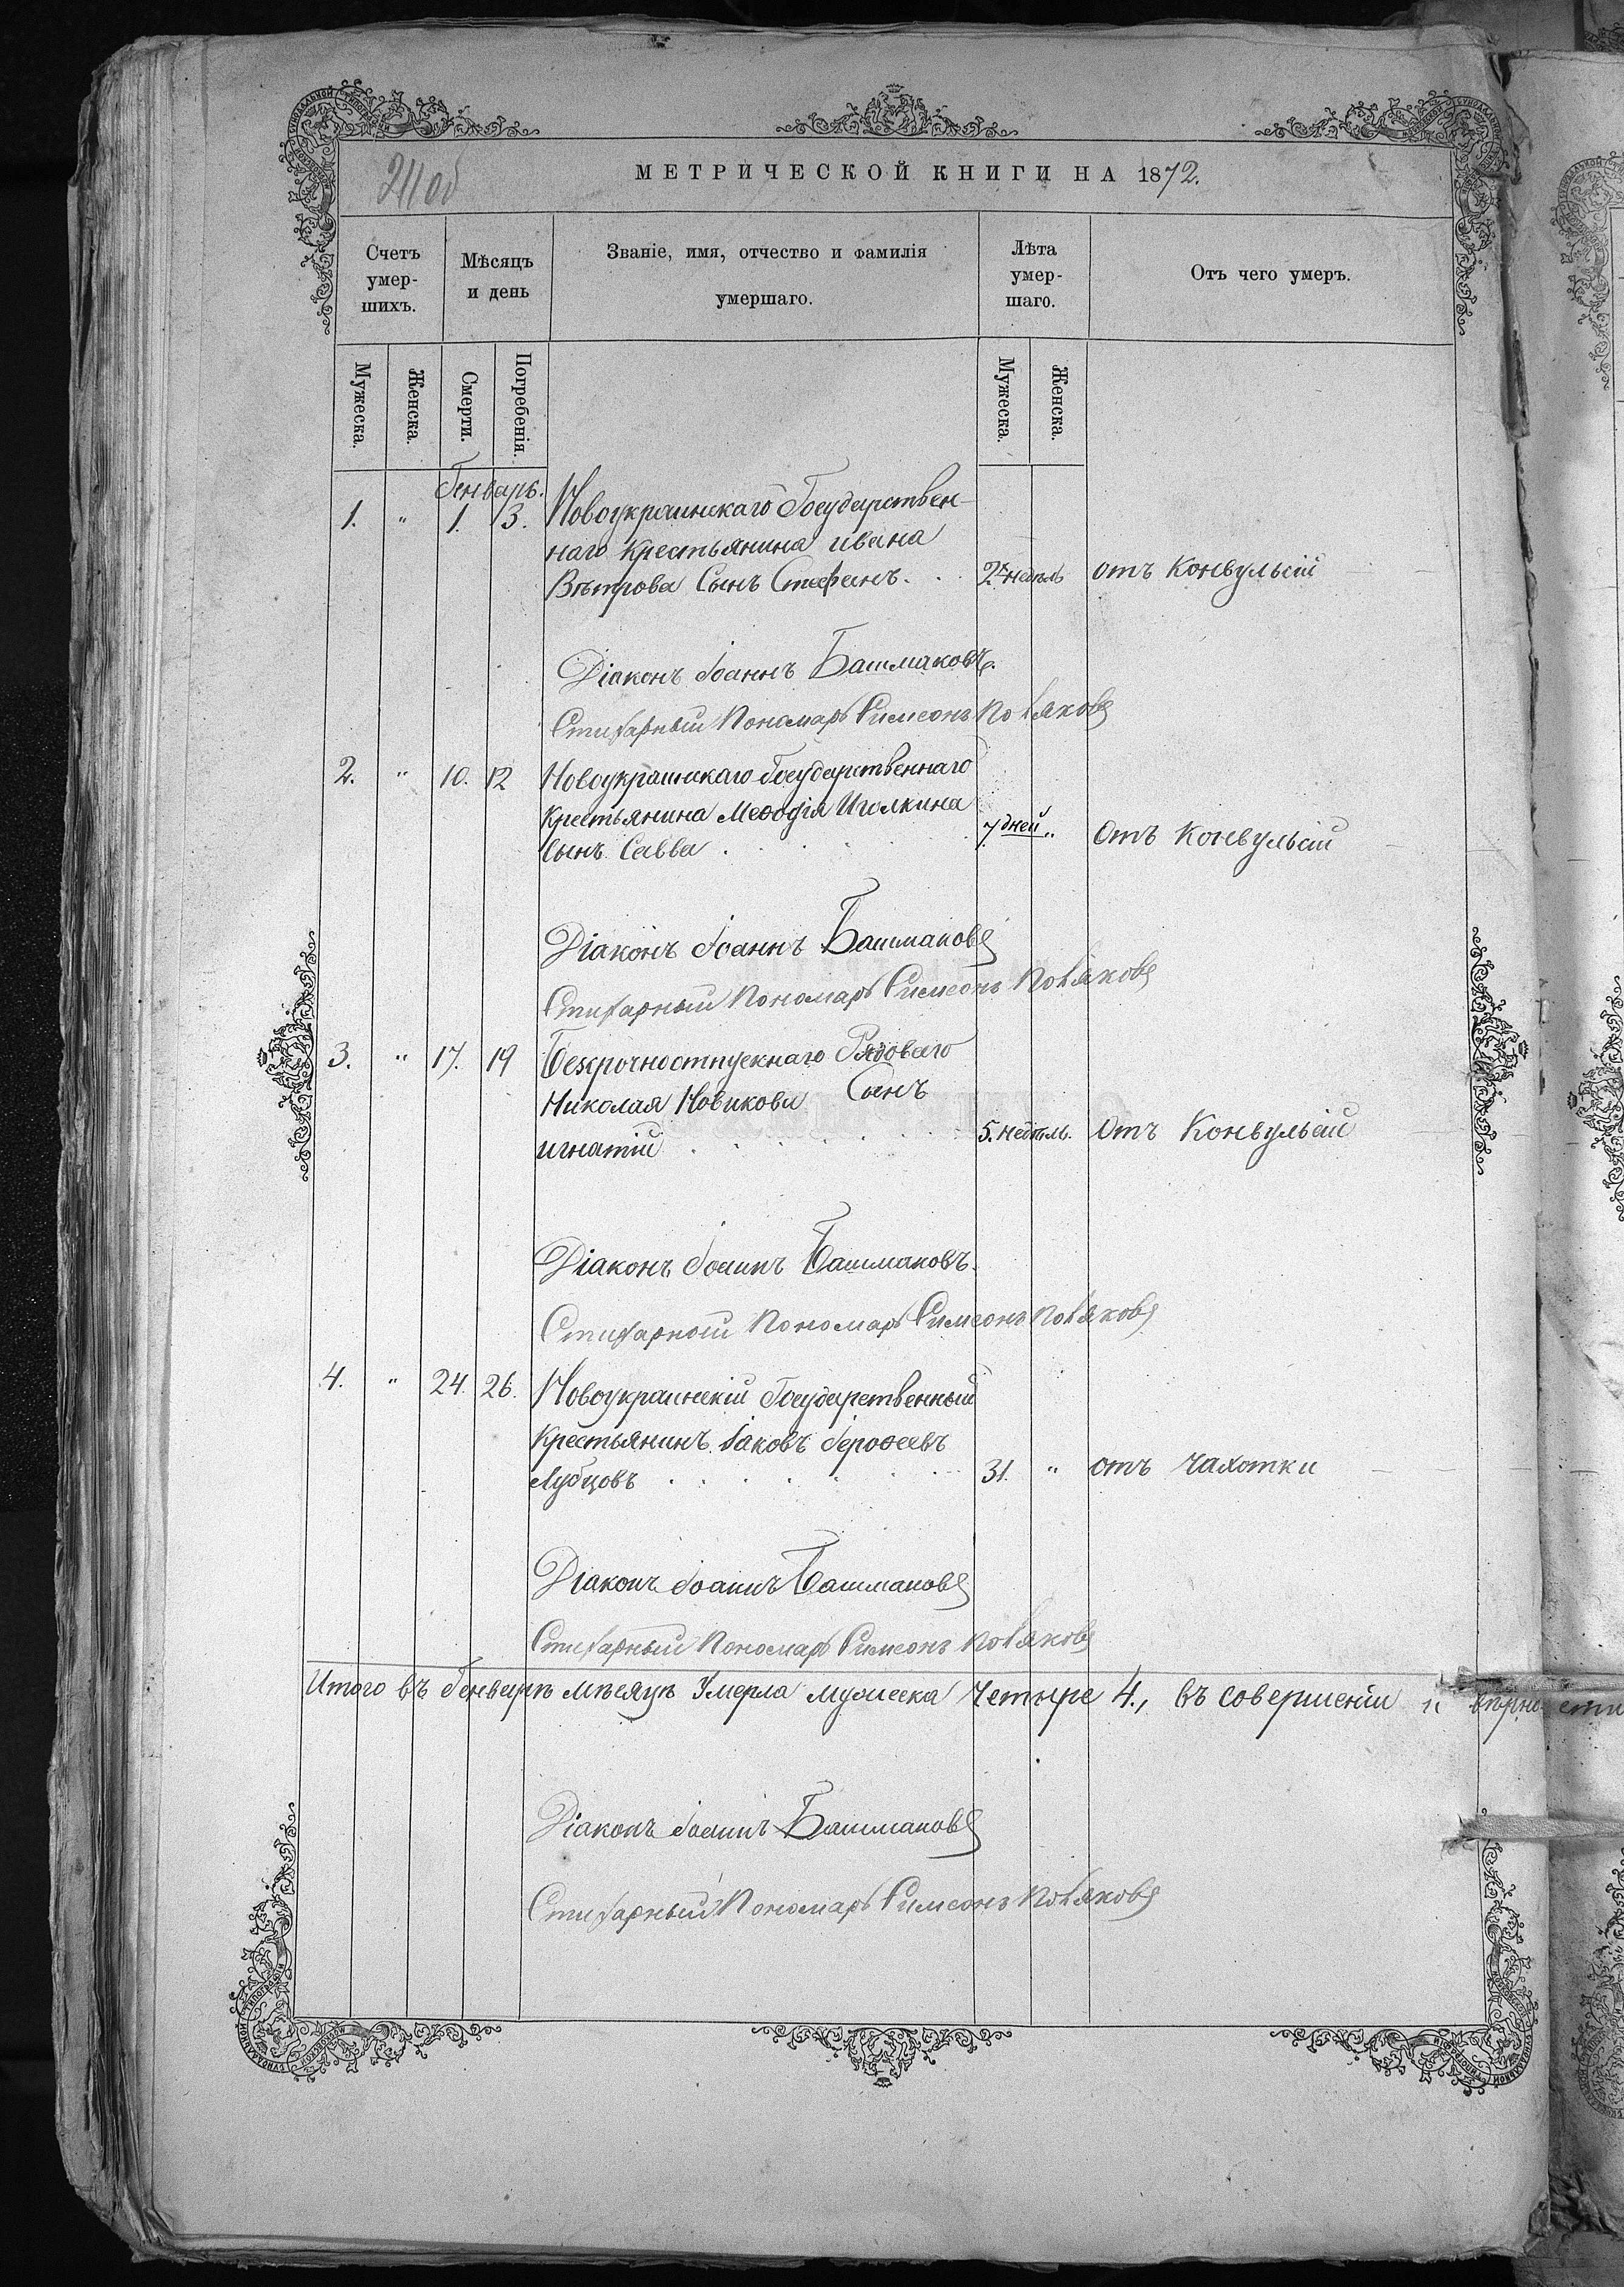 211 об
МЕТРИЧЕСКОЙ КНИГИ НА 1872.
Счетъ умер-шихъ.
Мѣсяцъ и день
Званіе, имя, отчество и фамилія
умершаго.
Лѣта умер-шаго.
Отъ чего умеръ.
Мужеска.
Женска.
Смерти.
Погребенія.
Мужеска.
Женска.
Генварь.
1. " 1. 3. Новоукраинскаго Государствен-
наго Крестьянина ивана
Вѣтрова Сынъ Стефанъ. . . 2х недѣль отъ Конвульсій
Діаконъ Іоаннъ Башмаковъ.
Стихарный Пономарь Симеонъ Поляковъ
2. " 10. 12 Новоукраинскаго Государственнаго
Крестьянина Меѳодія Иголкина
сынъ Савва . . . . 7 дней " Отъ Конвульсій
Діаконъ Іоаннъ Башмаковъ
Стихарный Пономарь Симеонъ Поляковъ
3. " 17. 19 Безсрочноотпускнаго Рядоваго
Николая Новикова Сынъ
игнатій . . . . . . 5. недѣль. Отъ Конвульсій
Діаконъ Іоаннъ Башмаковъ.
Стихарный Пономарь Симеонъ Поляковъ
4. " 24. 26. Новоукраинскій Государственный
Крестьянинъ Іаковъ Іероѳеевъ
Лубцовъ . . . . . . . 31. " отъ чахотки
Діаконъ Іоаннъ Башмаковъ
Стихарный Пономарь Симеонъ Поляковъ
Итого въ Генварѣ мѣсяцѣ Умерло мужеска Четыре 4., въ совершеніи и вѣрности
Діаконъ Іоаннъ Башмаковъ
Стихарный Пономарь Симеонъ Поляковъ